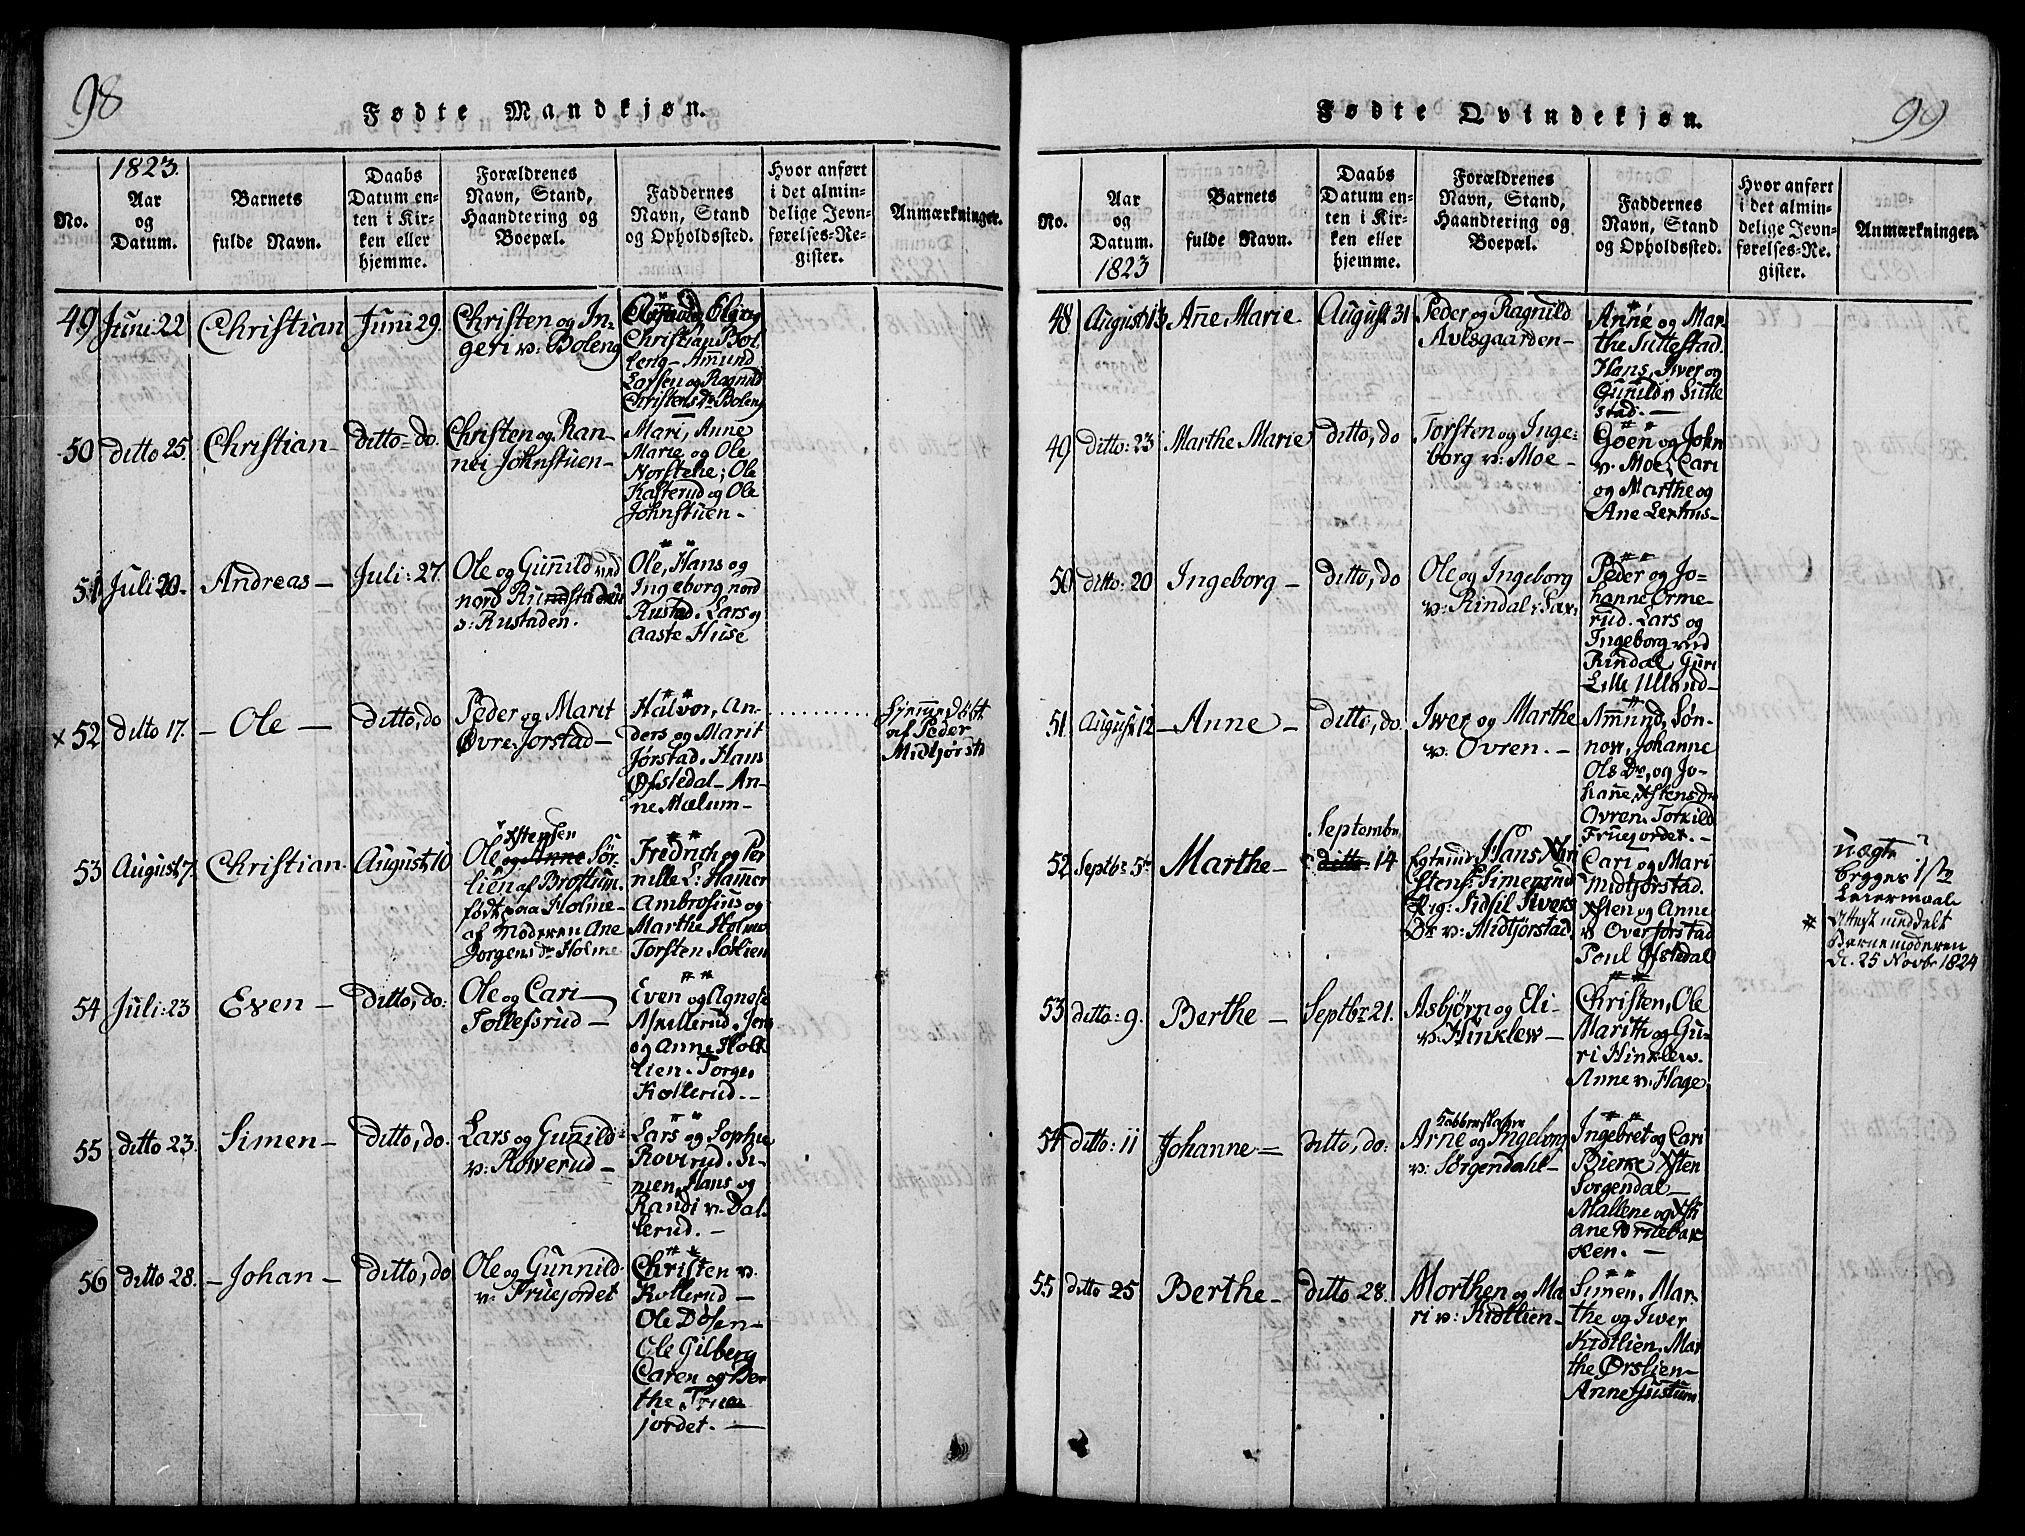 98
Fødte Mandkjøn.
1823.
No.
Aar
og
Datum.
Barnets
fulde Navn.
Daabs
Datum en-
ten i Kir-
ken eller
hjemme.
Forældrenes
Navn, Stand,
Haandtering og
Boepæl.
Faddernes
Navn, Stand
og Opholdssted.
Hvor anført
i det almin-
delige Jevn-
førelses-Re-
gister.
Anmærkninger.
49
Juni 22
Christian
Juni 29.
Christen og In-
geri v: Boleng
Christian Bol-
berg - Amund
Larsen og Ragnild
Christens dr Boleng
50
ditto 25.
Christian -
ditto - do.
Christen og Ran-
nei Johnstuen -
Mari, Anne
Marie og Ole
Norstehe; Ole
Kasterud og Ole
Johnstuen -
51
Juli 20.
Andreas -
Juli: 27.
Ole og Gunild ved
nord
v: Rustaden.
Ole, Hans og
Ingeborg nord
Rustad. Lars og
Aaste Huse
x 52
ditto 17.
- Ole -
ditto, do
Peder og Marit
Øvre Jorstad -
Halvor, An-
ders og Marit
Jørstad. Hans
Øfstedal - An-
ne Mælum -
døbt
af Peder
Midtjørst
53
August, 7.
Christian -
August, 10
Xstensen
Ole og Anne Sør-
lien af Brøttum.
født paa Holme -
af Moderen Ane
Jorgens dr Holme
Fredrich og Per
nille L: Hammer
Ambrosius og
Marthe Holme
Torsten Sørlien
54
Juli: 23
Even -
ditto, do:
Ole og Cari
Tollefsrud -
Even og Agnete
Askillerud. Jens
og Anne Holt-
lien. Torger
Kollerud. -
55
ditto 23.
Simen -
ditto, do.
Lars og Gunild
v: Rowerud -
Lars og Sophie
Rovirud. Si-
men, Hans og
Randi v: Dal-
lerud. -
56
ditto 28.
- Johan -
ditto, do
Ole og Gunnild
v: Fruejordet
Christen v:
Kollerud -
Ole Døsen -
Ole Gilberg
Caren og Ber
the Frue
jordet. -
99
Fødte Qvindekjøn.
No.
Aar
og
Datum.
1823
Barnets
fulde Navn.
Daabs
Datum en-
ten i Kir-
ken eller
hjemme.
Forældrenes
Navn, Stand,
Haandtering og
Boepæl.
Faddernes
Navn, Stand
og Opholdssted.
Hvor anført
i det almin-
delige Jevn-
førelses-Re-
gister.
Anmærkninger.
48
August, 13
Anne Marie
August 31
Peder og Ragnild
Avlsgaarden -
Anne og Mar-
the Suttestad.
Hans, Iwer og
Gunild v: Sutte
stad. -
49
ditto: 23
Marthe Marie
ditto, do
Torsten og Inge-
borg v: Moe -
Goen og John
v: Moe, Cari
og Marthe og
Ane Lerhus -
50
ditto: 20
Ingeborg -
ditto, do
Ole og Ingeborg
v: Rindal
Peder og Jo-
hanne Orme-
rud. Lars og
Ingeborg ved
Rindal Guri
Lille Ulland -
51
August, 12
- Anne -
ditto, do.
Iwer og Marthe
v: Ovren. -
Amund, Søn-
nov, Johanne
Ols Dr, og Jo-
hanne Xstens dr
Ovren. Torkild
Fruejordet. -
52
Septbr: 5te
Marthe -
Septembr
ditto 14
Hans
Stens: Simensrud
Sidsil Ivers
Dr v: Midtjørstad.
Cari og Mari
Midtjørstad.
Xsten og Anne
v: Overjørstad
Poul Øfstedal
uægte
begges 1ste
Leiermaal
* Attest meddelt
Barnemoderen
d. 25 Novbr 1824
53
ditto: 9.
Berthe -
Septbr: 21.
Asbjørn og Eli
v: Hinklew -
Christen, Ole
Marith og Gu-
ri Hinklew.
Anne v: Hage
54
ditto: 11
Johanne -
ditto, do:
Arne og Ingeborg
v: Sørgendahl -
Ingebret og Cari
Bierke, Xsten
Sorgendal -
Mallene og Xsti
ane Børstebak-
ken. -
55
ditto 25
Berthe -
ditto 28.
Morthen og Ma
ri v: Kidtlien -
Simen, Mar-
the og Iwer
Kidtlien, Mar
the Ørslien -
Anne Justum